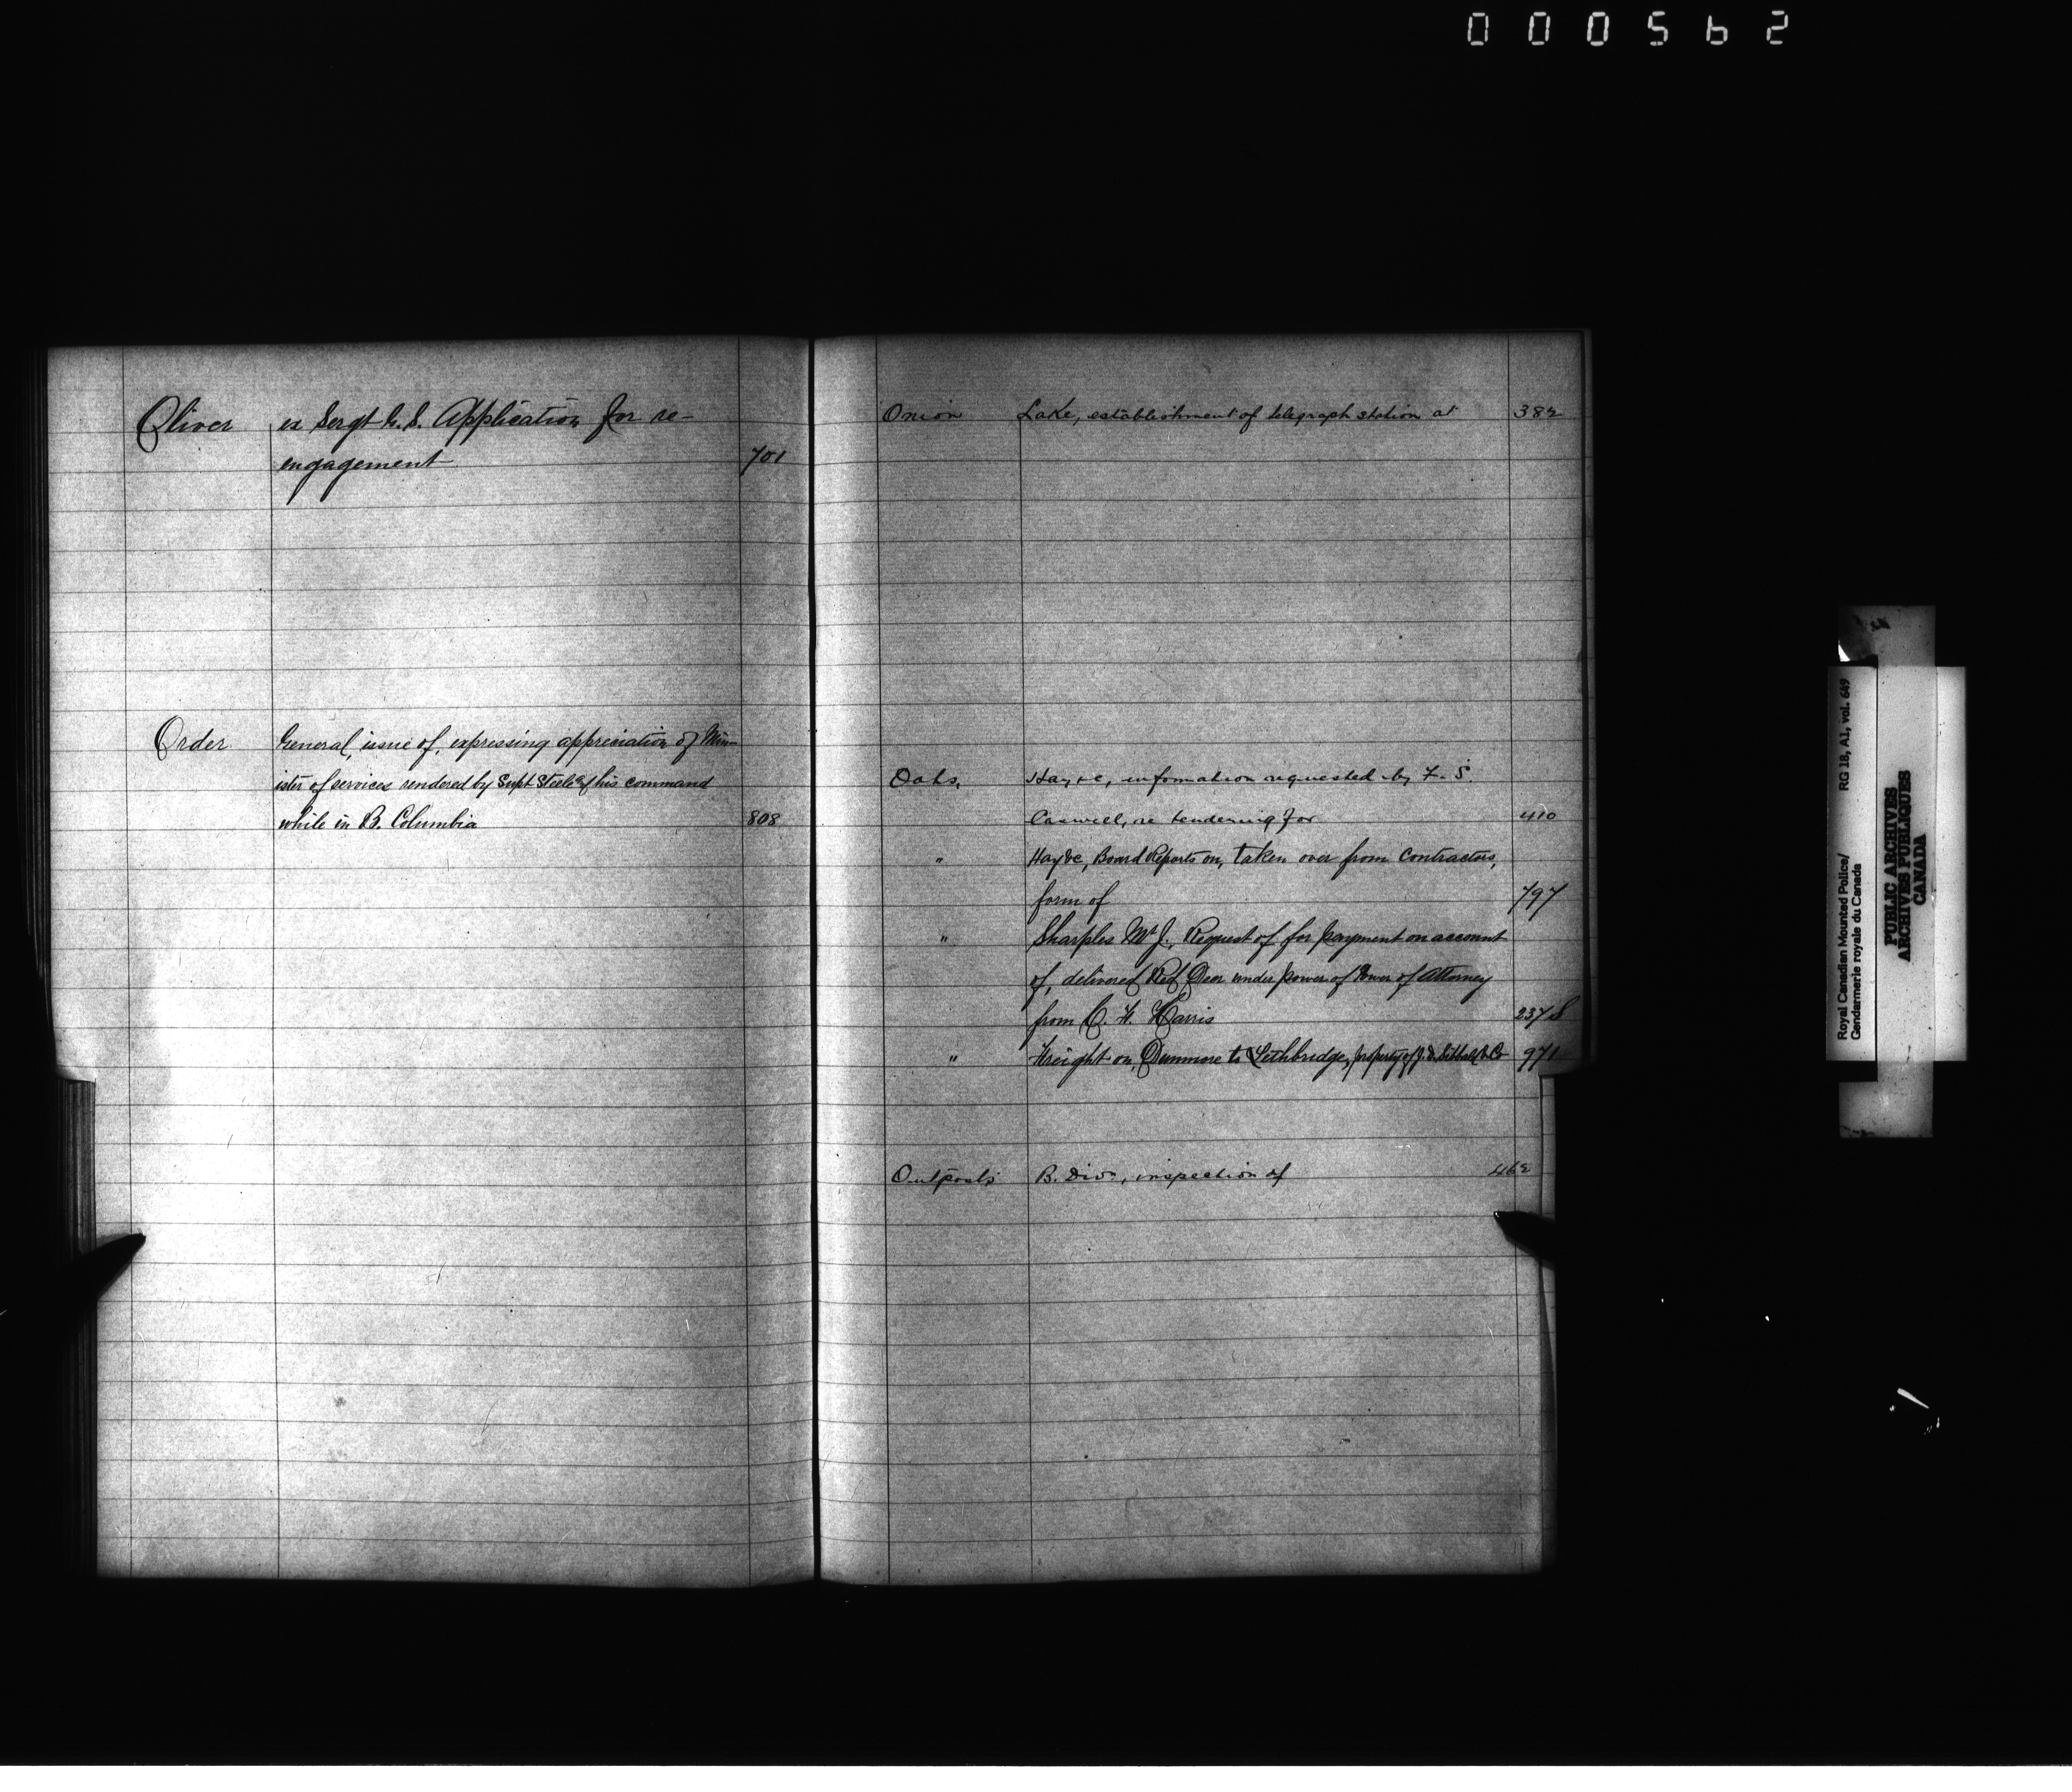 000562
Oliver ex Sergt G. S. Application for re-
engagement 701
Order General, issue of, expressing appreciation of Min-
ister of services rendered by Supt Steele & his command
while in B. Columbia 808
Onion Lake, establishment of telegraph station at 382
Oats, Hay &c, information requested by F. S.
Caswell, re tendering for 410
" Hay &c, Board Reports on, taken over from Contractors,
form of 797
" Sharples Mr J., Request of for payment on account
of, delivered Red Deer under power of Power of Attorney
from C. H. Harris 237 S
" Freight on, Dunmore to Lethbridge, property of J. D. Sibbald & Co 971
Outposts B. Divn, inspection of 462
Royal Canadian Mounted Police/
Gendarmerie royale du Canada
RG 18, A1, vol. 649
PUBLIC ARCHIVES
ARCHIVES PUBLIQUES
CANADA